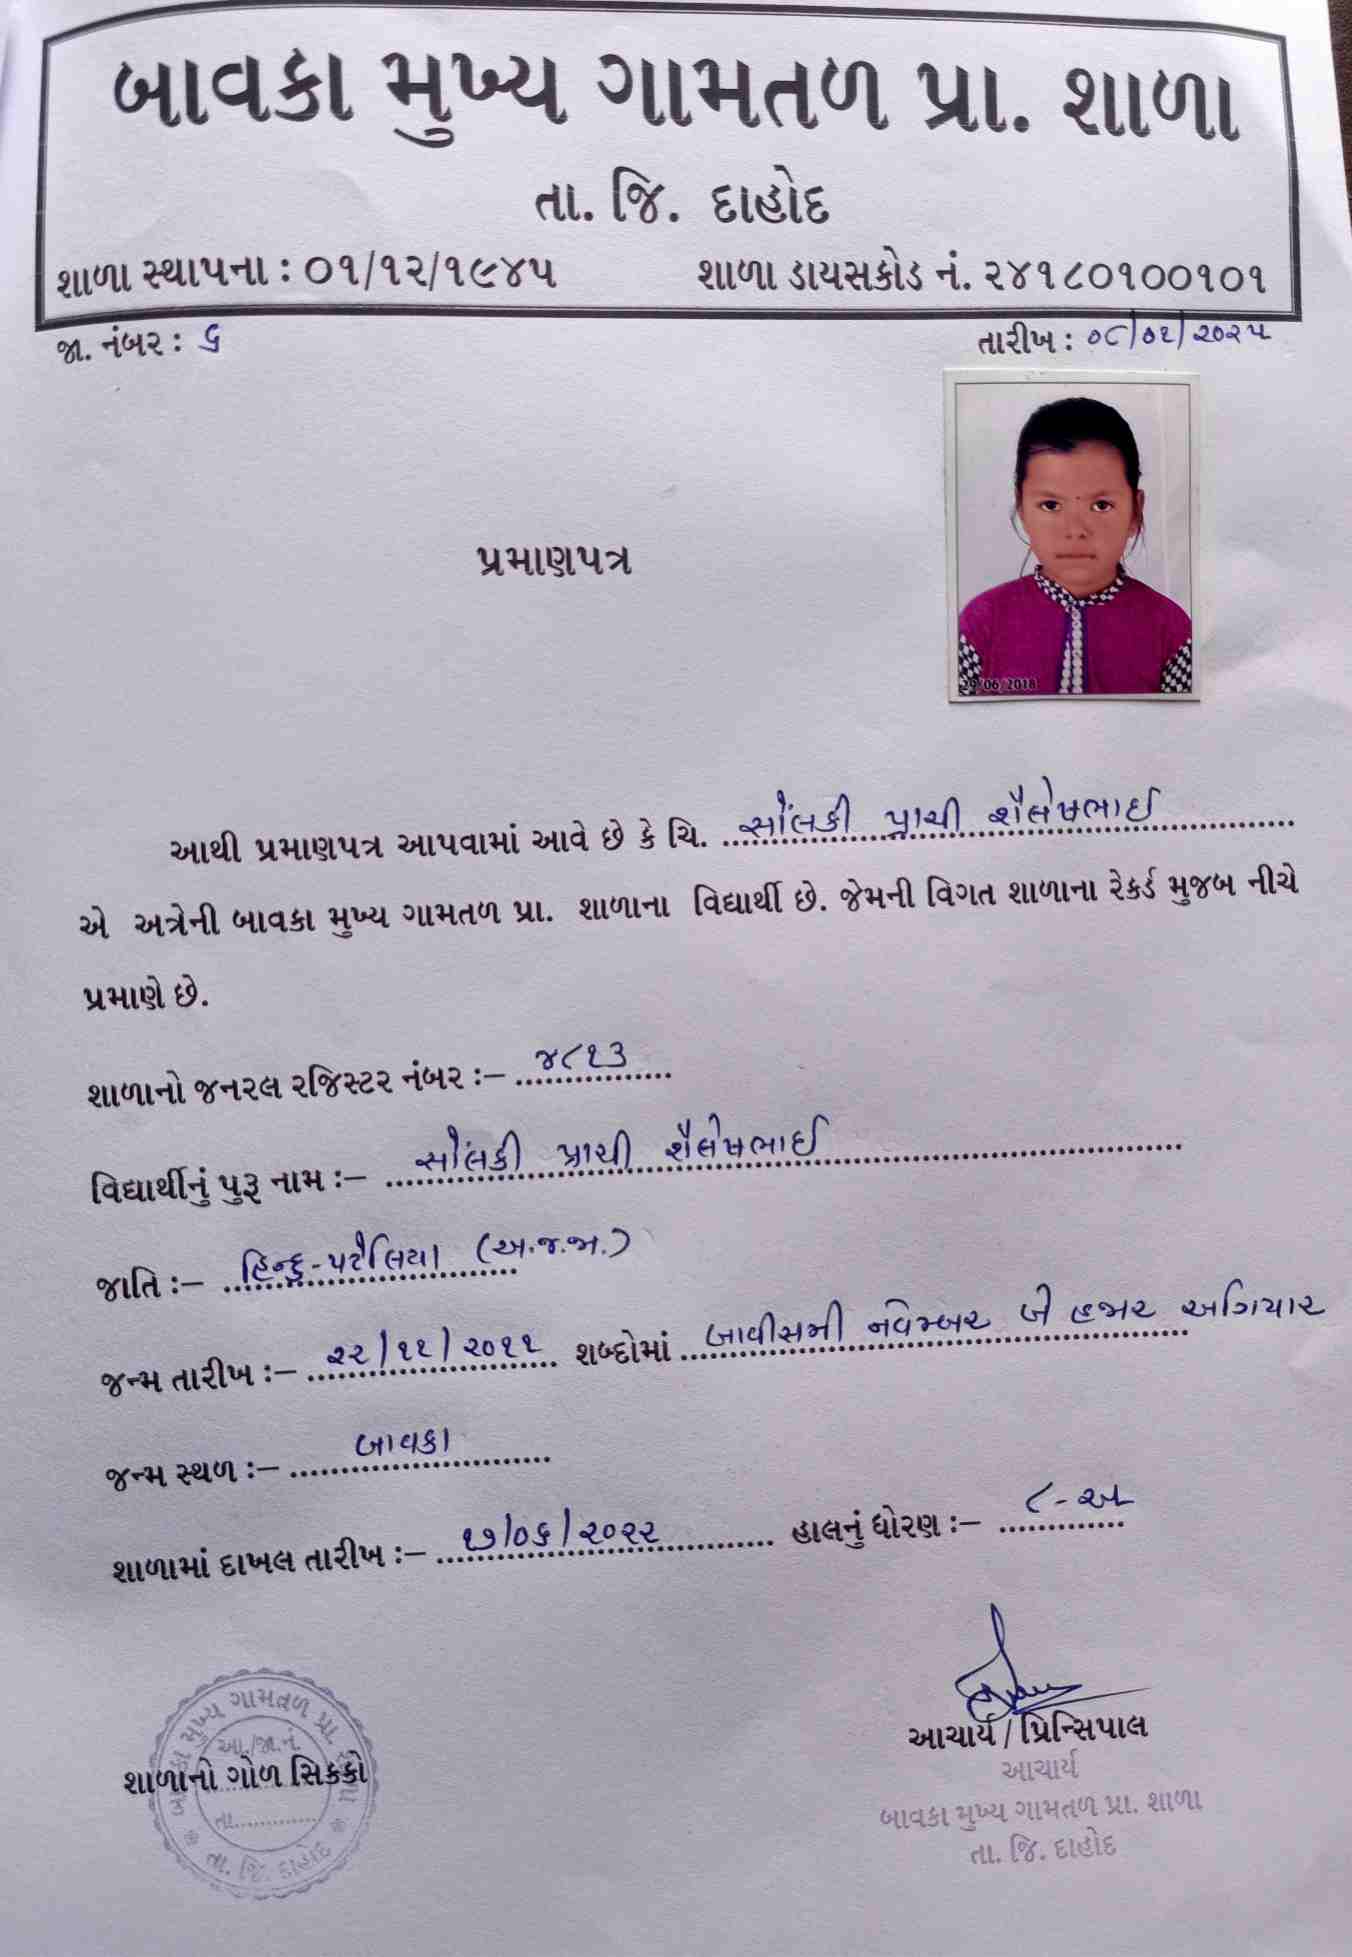 બાવકા મુખ્ય ગામતળ પ્રા. શાળા
તા. જિ. દાહોદ
શાળા સ્થાપના : ૦૧/૧૨/૧૯૪૫ શાળા ડાયસકોડ નં. ૨૪૧૮૦૧૦૦૧૦૧
જા. નંબર : ૬ તારીખ : ૦૮/૦૧/૨૦૨૫
29/06/2018
પ્રમાણપત્ર
આથી પ્રમાણપત્ર આપવામાં આવે છે કે ચિ. સોંલકી પ્રાચી શૈલેષભાઈ
એ અત્રેની બાવકા મુખ્ય ગામતળ પ્રા. શાળાના વિદ્યાર્થી છે. જેમની વિગત શાળાના રેકર્ડ મુજબ નીચે
પ્રમાણે છે.
શાળાનો જનરલ રજિસ્ટર નંબર :– ૪૮૧૩
વિદ્યાર્થીનું પુરૂ નામ :– સોંલકી પ્રાચી શૈલેષભાઈ
જાતિ :– હિન્દુ-પટેલિયા (અ.જ.જા.)
જન્મ તારીખ :– ૨૨/૧૧/૨૦૧૧ શબ્દોમાં બાવીસમી નવેમ્બર બે હજાર અગિયાર
જન્મ સ્થળ :– બાવકા
શાળામાં દાખલ તારીખ :– ૧૭/૦૬/૨૦૨૨ હાલનું ધોરણ :– ૮-અ
આચાર્ય / પ્રિન્સિપાલ
આચાર્ય
બાવકા મુખ્ય ગામતળ પ્રા. શાળા
તા. જિ. દાહોદ
શાળાનો ગોળ સિક્કો
બાવકા મુખ્ય ગામતળ પ્રા. શાળા
આ./જા.નં.
તા.
તા. જિ. દાહોદ